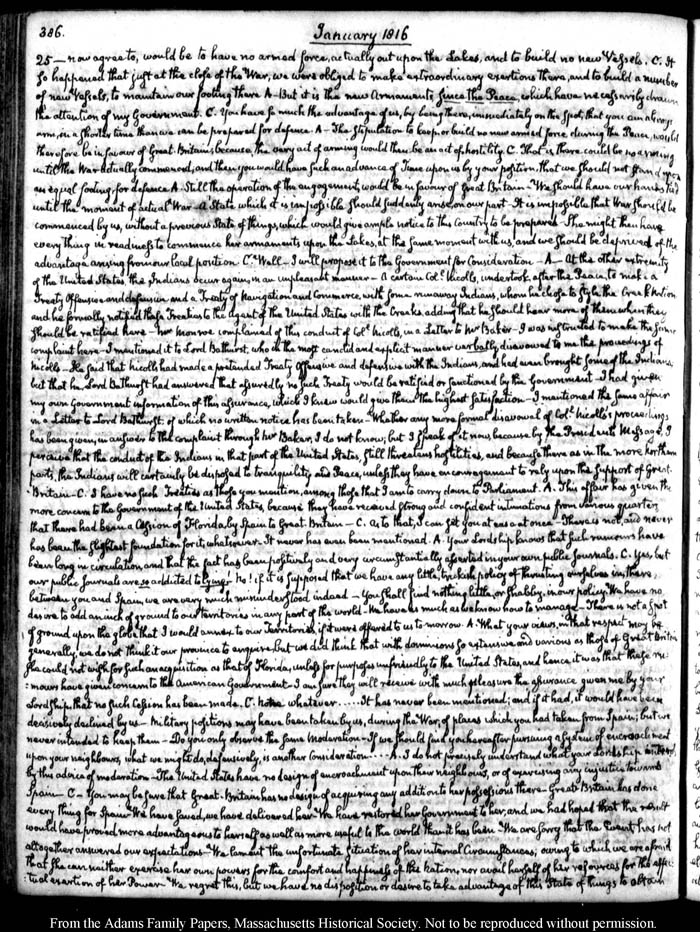 386.
January 1816
25 — now agree to, would be to have no armed force, actually out upon the Lakes, and to build no new Vessels. C. It
so happened that just at the close of the War, we were obliged to make extraordinary exertions there, and to build a number
of new Vessels, to maintain our footing there A — But it is the new Armaments since the Peace, which have necessarily drawn
the attention of my Government. C. You have so much the advantage of us, by being there, immediately on the Spot, that you can always
arm, in a shorter time than we can be prepared for defence. A — The stipulation to keep, or build no new armed force during the Peace, would
therefore be in favour of Great Britain; because, the very act of arming would then be an act of hostility. C. That is, there could be no arming
until the War actually commenced, and then you would have such an advance of Time upon us by your position, that we should not stand upon
an equal footing, for defence A. Still the operation of the engagement, would be in favour of Great Britain — We should have our hands tied
until the moment of actual War — A State which it is impossible should suddenly arise, on our part — It is impossible that War should be
commenced by us, without a previous State of things, which would give ample notice to this Country to be prepared. She might then have
every thing in readiness to commence her armaments upon the Lakes, at the same moment with us, and we should be deprived of the
advantage arising from our local position. C. Well — I will propose it to the Government for Consideration — A — At the other extremity
of the United States, the Indians occur again, in an unpleasant manner — A certain Col. Nicolls, undertook after the Peace, to make a
Treaty Offensive and defensive and a Treaty of Navigation and Commerce, with some runaway Indians, whom he chose to style the Creek Nation
and he formally notified these Treaties to the agent of the United States with the Creeks adding that he should hear more of them when they
should be ratified here — Mr Monroe complained of this conduct of Col. Nicolls, in a Letter to Mr Baker — I was instructed to make the same
complaint here — I mentioned it to Lord Bathurst, who in the most candid and explicit manner verbally, disavowed to me the proceedings of
Nicolls — He said that Nicolls had made a pretended Treaty Offensive and defensive with the Indians, and had even brought some of the Indians,
but that he, Lord Bathurst had answered that assuredly no such Treaty would be ratified or sanctioned by the Government — I had given
my own Government information of this assurance, which I knew would give them the highest satisfaction — I mentioned the same affair
in a Letter to Lord Bathurst, of which no written notice has been taken — Whether any more formal disavowal of Col. Nicolls's proceedings
has been given, in answer to the complaint through Mr Baker, I do not know; but I speak of it now, because by the Presidents Message, I
perceive that the conduct of the Indians in that part of the United States, still threatens hostilities, and because there as in the more northern
parts, the Indians will certainly be disposed to tranquility and Peace, unless they have encouragement to rely upon the support of Great-
-Britain — C. I have no such Treaties as those you mention, among those that I am to carry down to Parliament. A. This affair has given the
more concern to the Government of the United States, because they have received strong and confident intimations from various quarters
that there had been a Cession of Florida, by Spain to Great Britain — C. As to that, I can set you at ease at once — There is not, and never
has been the slightest foundation for it, whatsoever. It never has even been mentioned. A. Your Lordship knows that such rumours have
been long in circulation, and that the fact has been positively and very circumstantially asserted in your own public Journals. C. Yes, but
our public Journals are so addicted to lying — No! if it is supposed that we have any little, trickish policy of thrusting ourselves in, there,
between you and Spain, we are very much misunderstood indeed — You shall find nothing little, or shabby, in our policy. We have no
desire to add an inch of ground to our territories in any part of the world. We have as much as we know how to manage — There is not a spot
of ground upon the globe that I would annex to our Territories, if it were offered to us to morrow. A. What your views, in that respect may be
generally, we do not think it our province to enquire. but we did think that with dominions so extensive and various as those of Great Britain
she could not wish for such an acquisition as that of Florida, unless for purposes unfriendly to the United States, and hence it was that these ru-
:mours have given concern to the American Government. I am sure they will receive with much pleasure the assurance given me by your
Lordship, that no such Cession has been made. C. None whatever ..... It has never been mentioned; and if it had, it would have been
decisively declined by us — Military positions may have been taken by us, during the War, of places which you had taken from Spain; but we
never intended to keep them — Do you only observe the same Moderation. If we should find you hereafter pursuing a System of encroachment
upon your neighbours, what we might do, defensively, is another consideration .... A. I do not precisely understand what your Lordship intends,
by this advice of moderation — The United States have no design of encroachment upon their neighbours, or of exercising any injustice towards
Spain — C — You may be sure that Great-Britain has no design of acquiring any addition to her possessions there — Great Britain has done
every thing for Spain. We have saved, we have delivered her. We have restored her Government to her; and we had hoped that the result
would have proved more advantageous to herself as well as more useful to the world than it has been. We are sorry that the Event, has not
altogether answered our expectations — We lament the unfortunate situation of her internal Circumstances, owing to which we are afraid
that she can neither exercise her own powers for the comfort and happiness of the Nation, nor avail herself of her resources for the effec-
:tual exertion of her Power. We regret this, but we have no disposition or desire to take advantage of this State of things to obtain
From the Adams Family Papers, Massachusetts Historical Society. Not to be reproduced without permission.